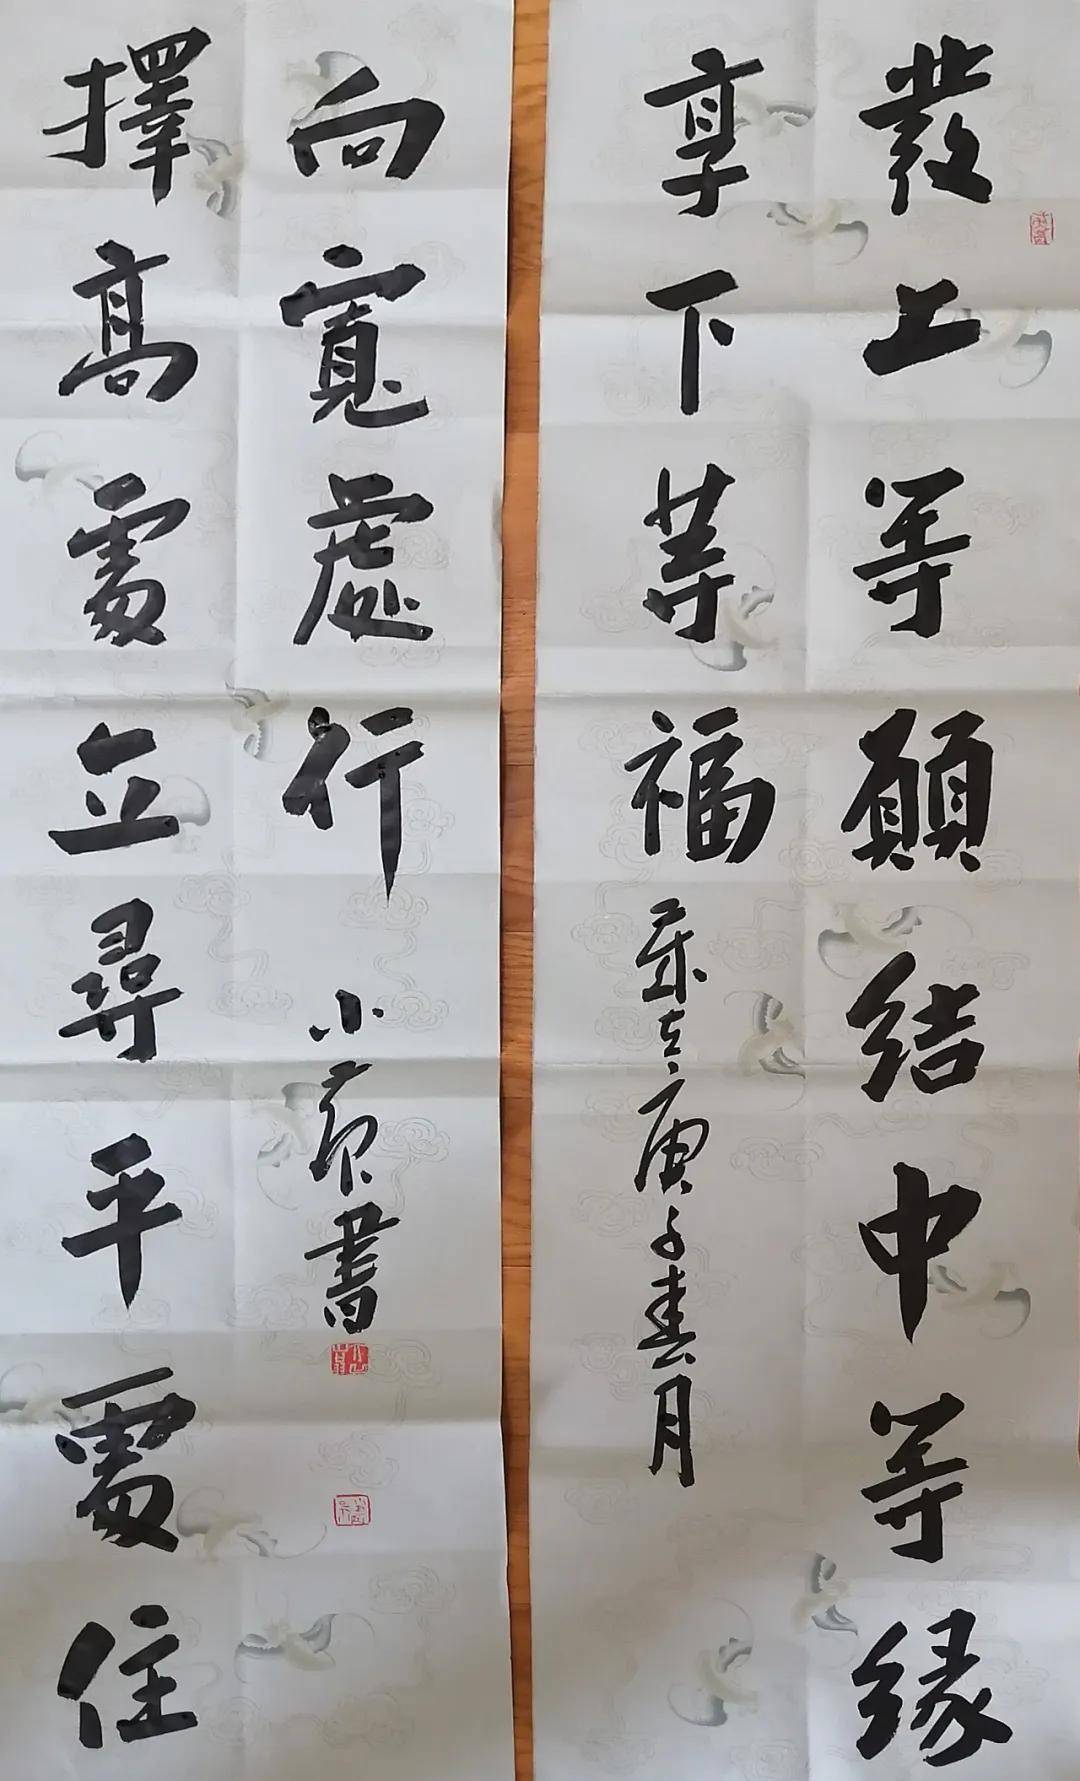 發上等願結中等緣
享下等福
歲在庚子春月
擇高處立尋平處住
向寬處行
小 書